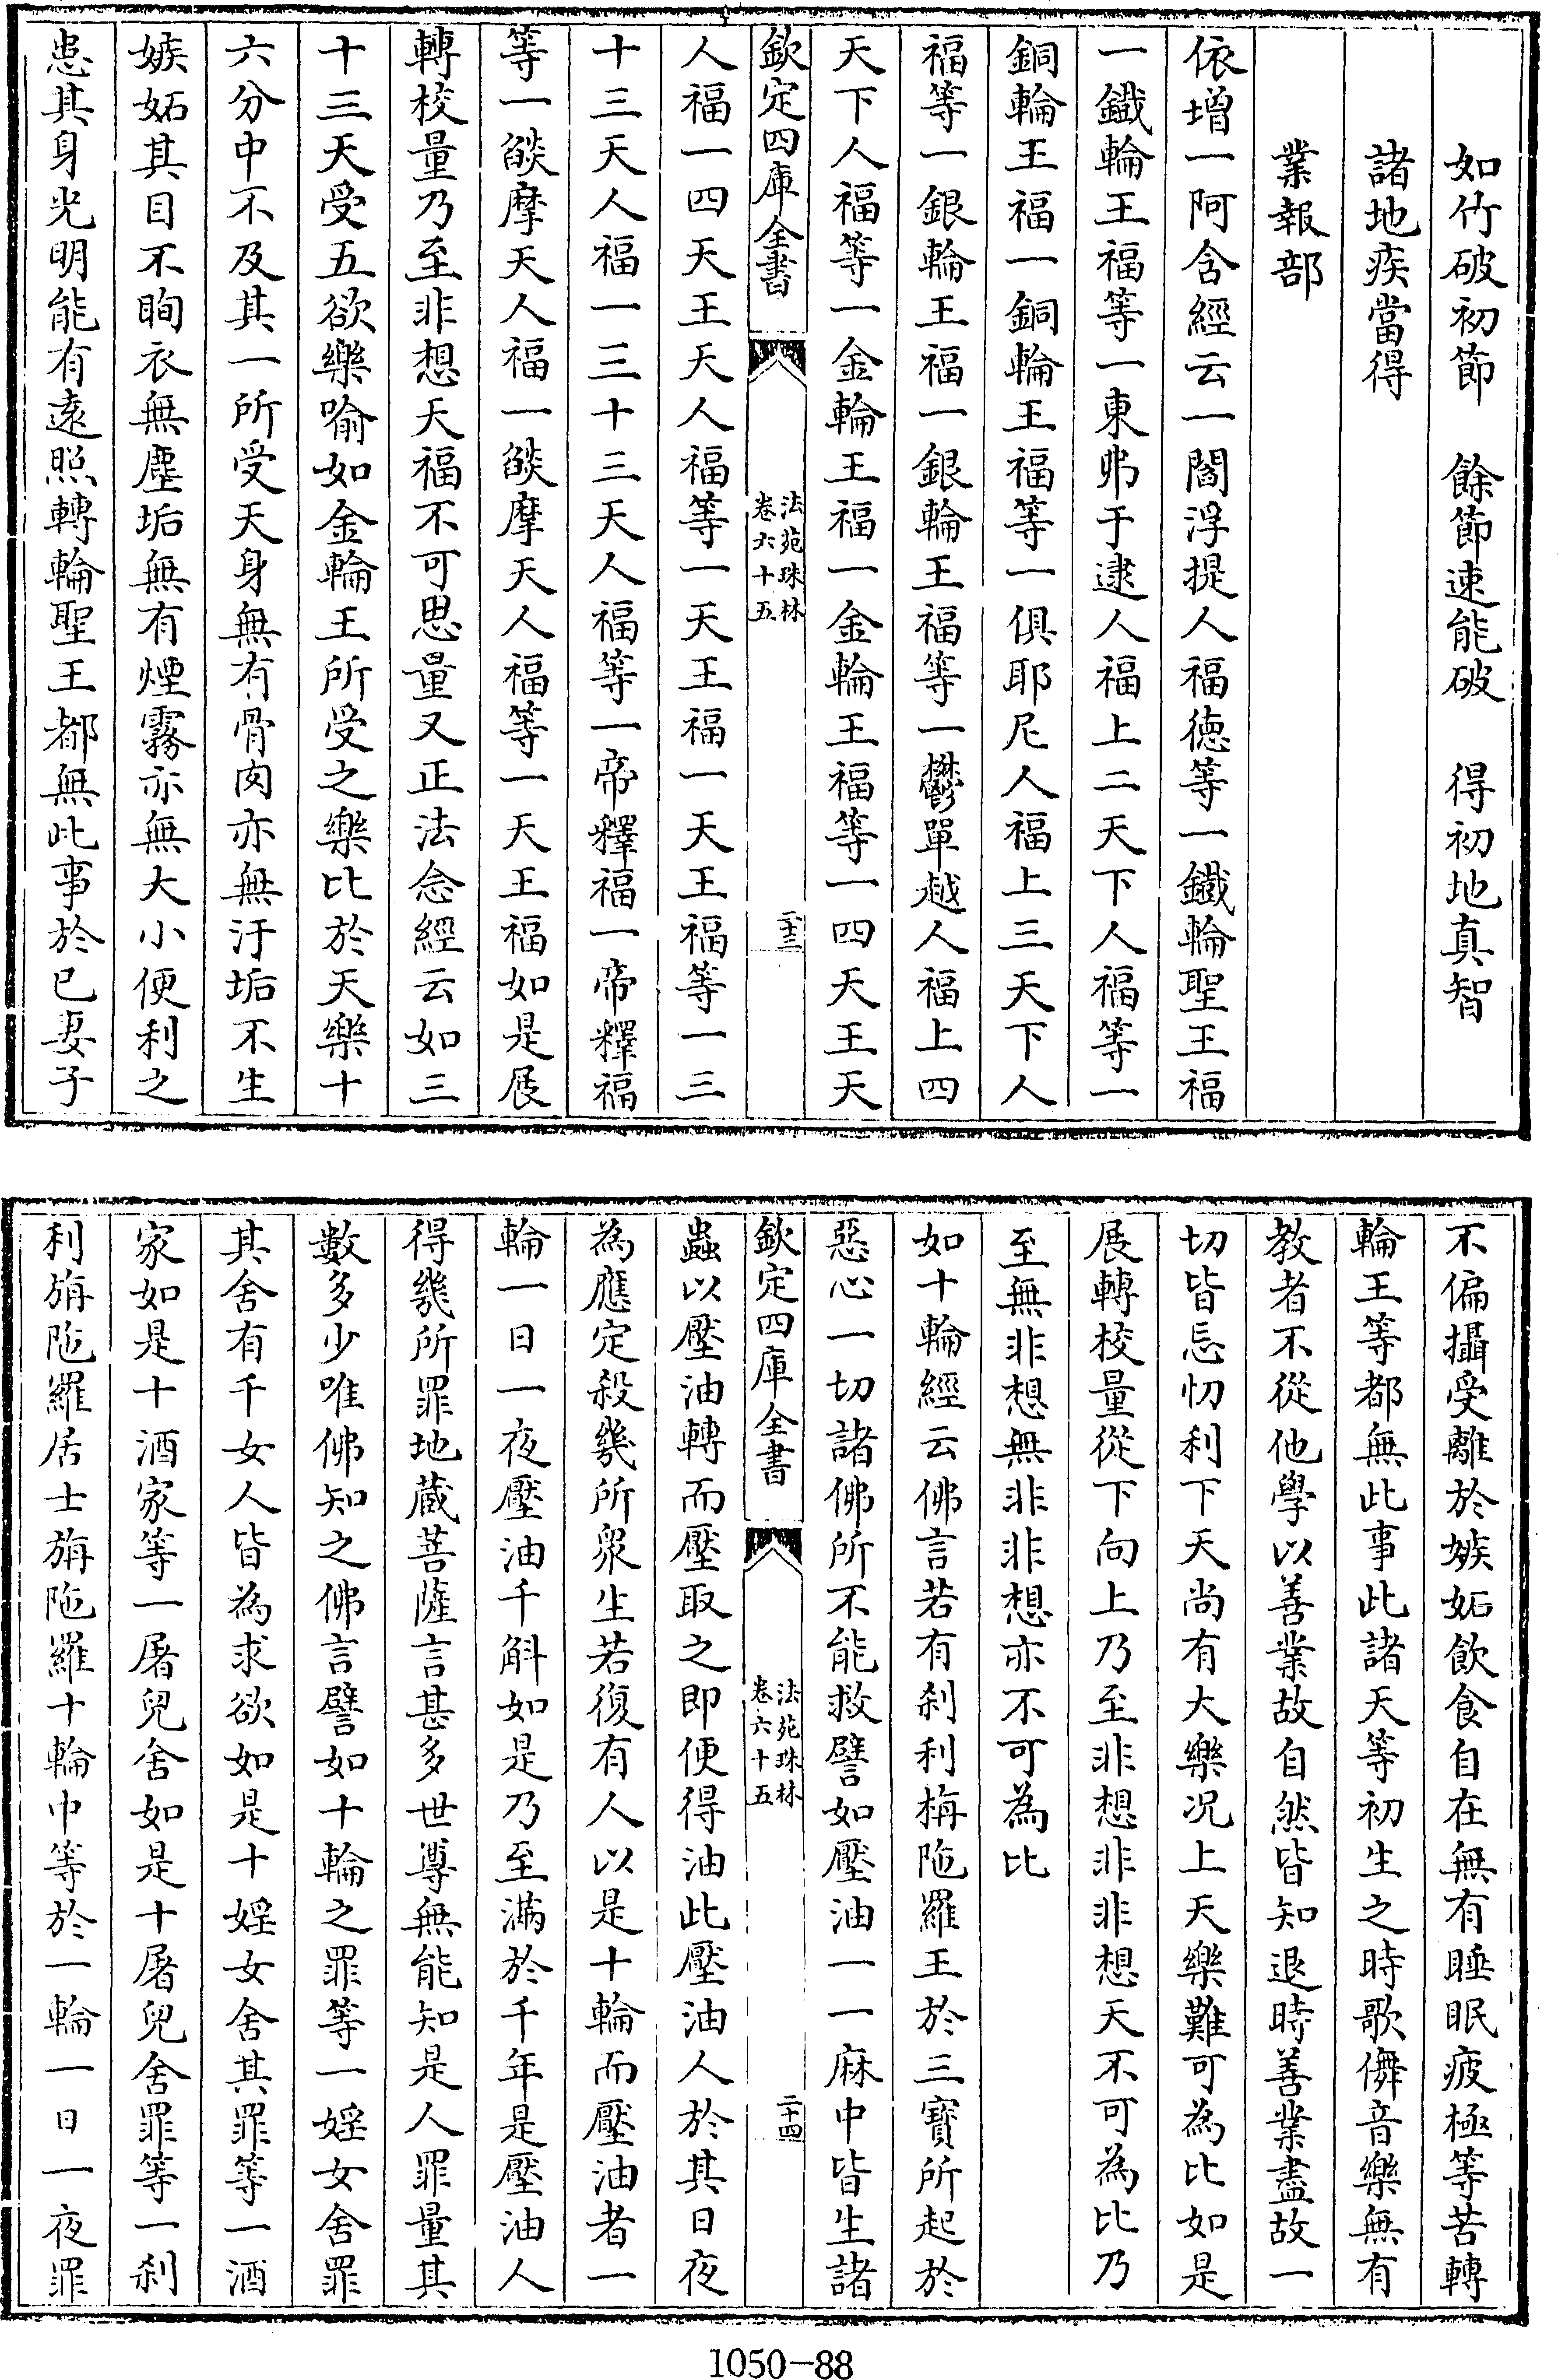 如竹破初節　餘節速能破　得初地真智
諸地疾當得
業報部
依增一阿含經云一閻浮提人福德等一鐵輪聖王福
一鐵輪王福等一東弗于逮人福上二天下人福等一
銅輪王福一銅輪王福等一俱耶尼人福上三天下人
福等一銀輪王福一銀輪王福等一鬱單越人福上四
天下人福等一金輪王福一金輪王福等一四天王天
欽定四庫全書
法苑珠林
卷六十五
二十三
人福一四天王天人福等一天王福一天王福等一三
十三天人福一三十三天人福等一帝釋福一帝釋福
等一燄摩天人福一燄摩天人福等一天王福如是展
轉校量乃至非想天福不可思量又正法念經云如三
十三天受五欲樂喻如金輪王所受之樂比於天樂十
六分中不及其一所受天身無有骨肉亦無汙垢不生
嫉妬其目不眴衣無塵垢無有煙霧亦無大小便利之
患其身光明能有遠照轉輪聖王都無此事於已妻子
不偏攝受離於嫉妬飲食自在無有睡眠疲極等苦轉
輪王等都無此事此諸天等初生之時歌儛音樂無有
教者不從他學以善業故自然皆知退時善業盡故一
切皆忘忉利下天尚有大樂况上天樂難可為比如是
展轉校量從下向上乃至非想非非想天不可為比乃
至無非想無非非想亦不可為比
如十輪經云佛言若有刹利栴陁羅王於三寶所起於
惡心一切諸佛所不能救譬如壓油一一麻中皆生諸
欽定四庫全書
法苑珠林
卷六十五
二十四
蟲以壓油轉而壓取之即便得油此壓油人於其日夜
為應定殺幾所衆生若復有人以是十輪而壓油者一
輪一日一夜壓油千斛如是乃至滿於千年是壓油人
得幾所罪地藏菩薩言甚多世尊無能知是人罪量其
數多少唯佛知之佛言譬如十輪之罪等一婬女舍罪
其舍有千女人皆為求欲如是十婬女舍其罪等一酒
家如是十酒家等一屠兒舍如是十屠兒舍罪等一刹
利旃陁羅居士旃陁羅十輪中等於一輪一日一夜罪
1050-88